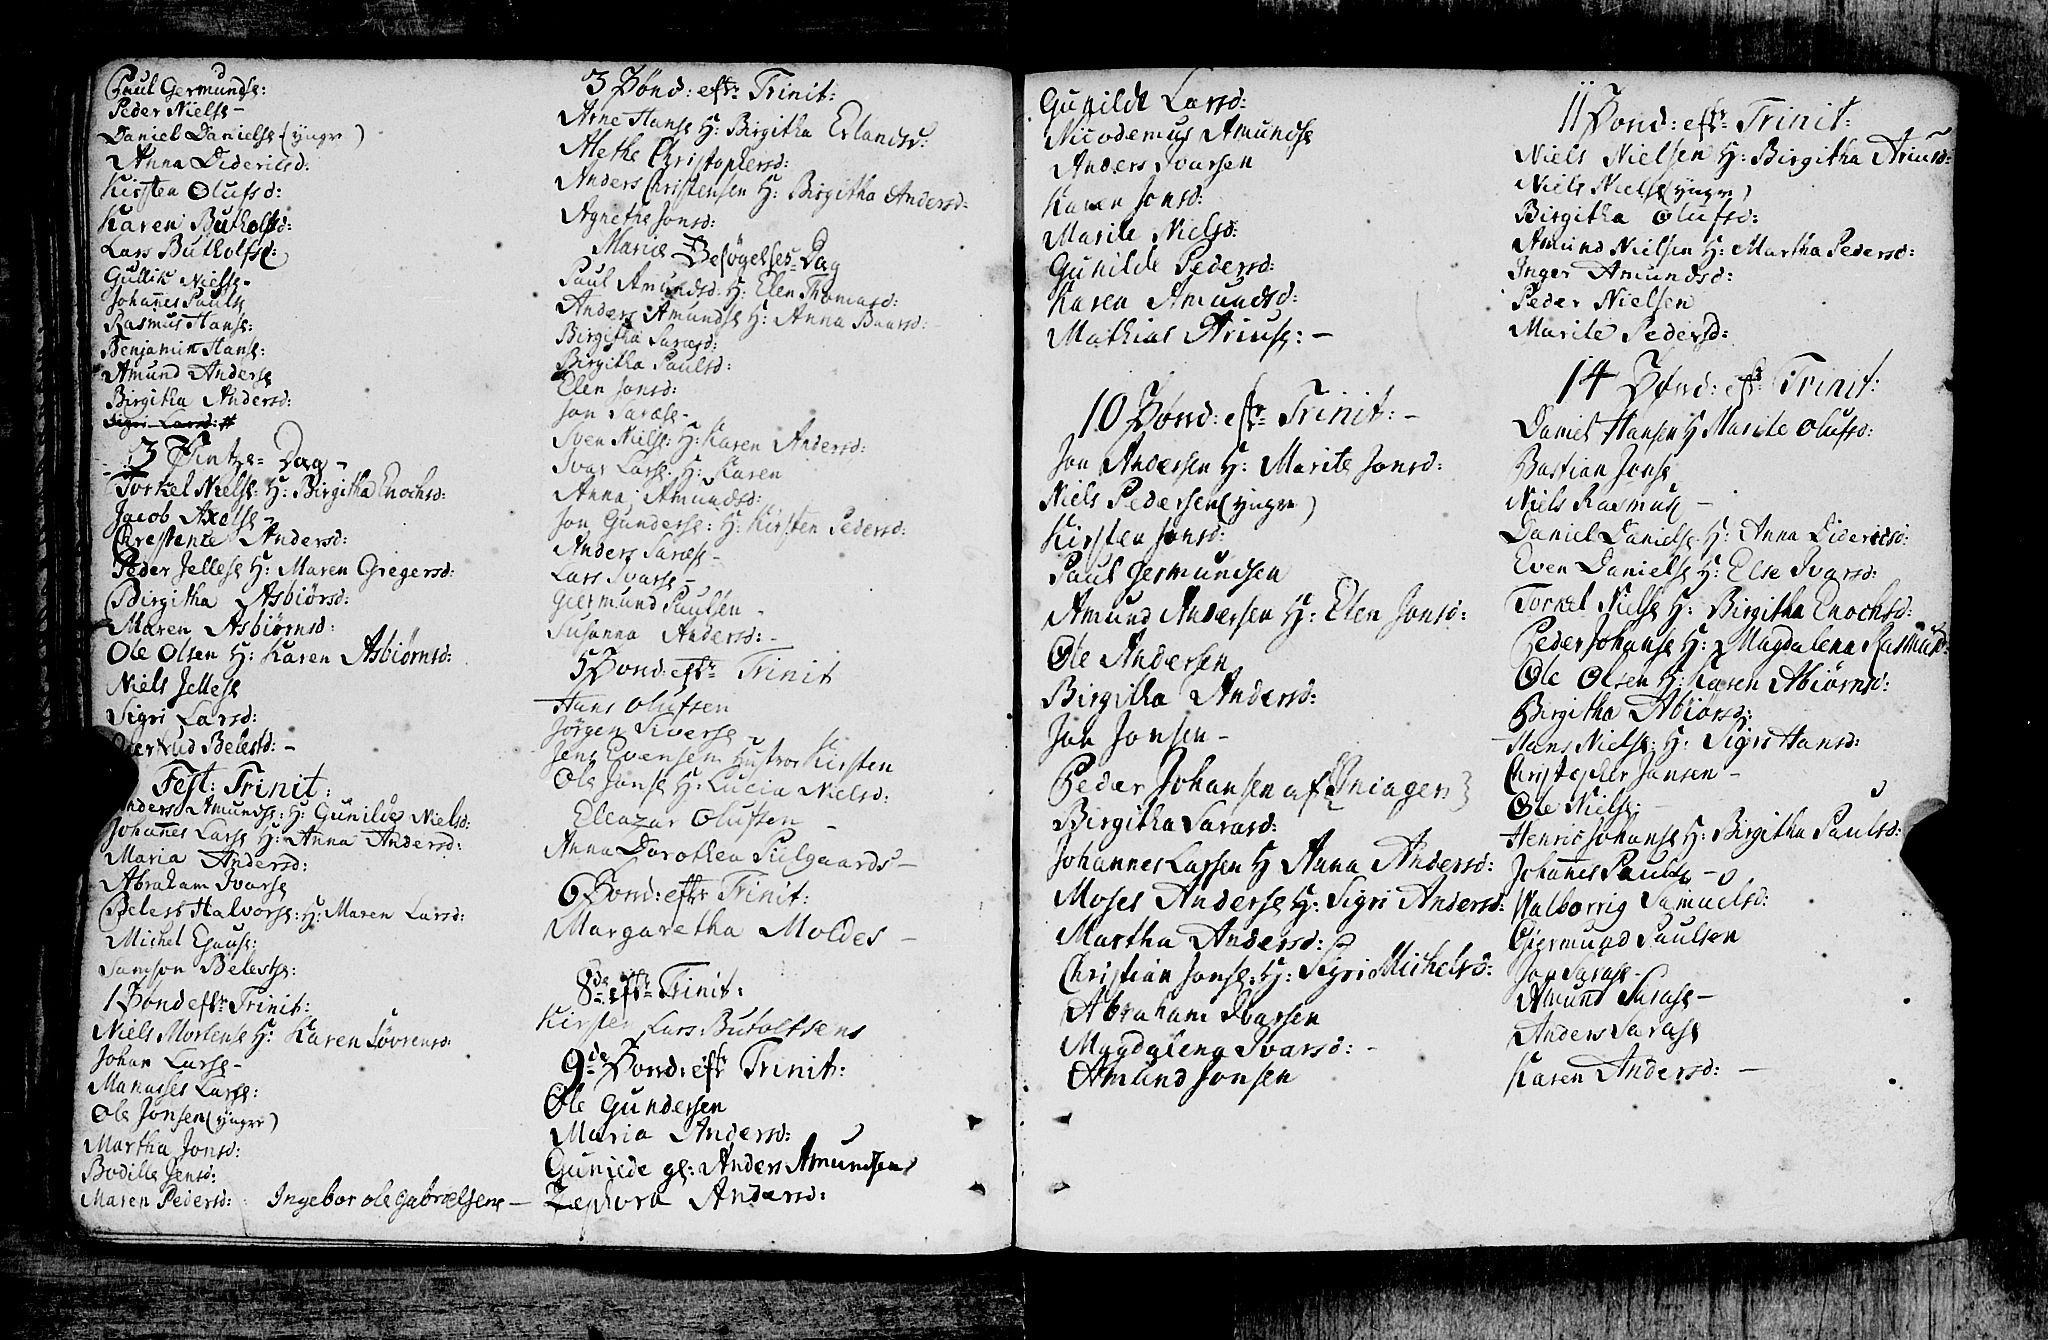 Paul Germundse:
Peder Nielse -
Daniel Danielse (yngre)
Anna Didericsd:
Kirsten Olufsd:
Karen Butholfsd:
Lars Butholfse:
Gullik Nielse -
Johannes Paulse
Rasmus Hanse:
Benjamin Hanse:
Amund Anderse
Birgitha Andersd:
Sigri Larsd:
3 Pintze=Dag -
Torkel Nielse: H: Birgitha Enochsd:
Jacob Axelse -
Chrestence Andersd:
Peder Jellese H: Maren Gregersd:
Birgitha Asbiørsd:
Maren Asbiørnsd:
Ole Olsen H: Karen Asbiørnsd:
Niels Jellese
Sigri Larsd:
Giertrud Belestd: -
Fest: Trinit:
Anders Amundse: H: Gunilde Nielsd:
Johannes Larse H: Anna Andersd:
Maria Andersd:
Abraham Ivarse
Belest Halvorse: H: Maren Larsd:
Michel
Samson Belestse:
1 Sønd eftr Trinit:
Niels Mortense H: Karen Søvrensd:
Johan Larse -
Manasses Larse:
Ole Jonsen (yngre)
Martha Jonsd:
Bodille Jensd:
Maren Pedersd: Ingebor ole Gabrielsens -
3 Sønd: eftr Trinit:
Arne Hanse H: Birgitha Erlandsd:
Alethe Christophersd:
Anders Christensen H: Birgitha Andersd:
Agnethe Jonsd:
Mariæ Besøgelses=Dag
Paul Amundsd: H: Elen Thomasd:
Anders Amundse H: Anna Baarsd:
Birgitha Sarasd:
Birgitha Paulsd:
Elen Jonsd:
Jon Sarase -
Sven Nielse: H: Karen Andersd:
Ivar Larse: H: Karen
Anna Amundsd:
Jon Gunderse: H: Kirsten Pedersd:
Anders Sarase -
Lars Ivarse -
Giermund Paulsen -
Susanna Andersd: -
5 Sønd: eftr Trinit
Hans Olufsen
Jørgen Siverse -
Jens Evensens Hustroe Kirsten
Ole Jonse H: Lucia Nielsd:
Eleazar Olufsen -
Anna Dorothea Pulgaards -
6 Sønd: eftr Trinit:
Margaretha Moldes -
8de eftr Trinit:
Kirsten Lars: Butolfsens
9de Sønd: eftr Trinit:
Ole Gundersen
Maria Andersd:
Gunilde gl: Anders Amundsens
Zephora Andersd:
Gunilde Larsd:
Nicodemus Amundse
Anders Ivarsen
Karen Jonsd:
Marite Nielsd:
Gunilde Pedersd:
Karen Amundsd:
Mathias Ariuse: -
10 Sønd: eftr Trinit: -
Jon Andersen H: Marite Jonsd:
Niels Pedersen (yngre)
Kirsten Jonsd:
Paul Germundsen
Amund Andersen H: Elen Jonsd:
Ole Andersen
Birgitha Andersd:
Jon Jonsen -
Peder Johansen af
Birgitha Sarasd:
Johannes Larsen H Anna Andersd:
Moses Anderse H: Sigri Andersd:
Martha Andersd:
Christian Jonse: H: Sigri Michelsd:
Abraham Ivarsen
Magdalena Ivarsd: -
Amund Jonsen
11 Sønd: eftr Trinit:
Niels Nielsen H: Birgitha Ariusd:
Niels Nielse (yngre)
Birgitha Olufsd:
Amund Nielsen H: Martha Pedersd:
Inger Amundsd:
Peder Nielsen
Marite Pedersd:
14 Sønd: eftr Trinit:
Daniel Hansen H Marite Olufsd:
Bastian Jonse
Niels Rasmuse -
Daniel Danielse H: Anna Didericsd:
Even Danielse H: Else Ivarsd:
Torkel Nielse H: Birgitha Enochsd:
Peder Johanse H: Magdalena Rasmusd:
Ole Olsen H: Karen Abiørnsd:
Birgitha Abiørsd:
Hans Nielse: H: Sigri Hansd:
Christopher Jansen -
Ole Nielse: -
Henric Johanse H: Birgitha Paulsd:
Johannes Paulse -
Walborrig Samuelsd:
Giermund Paulsen
Jon Sarase -
Amund Sarase -
Anders Sarase
Karen Andersd: -